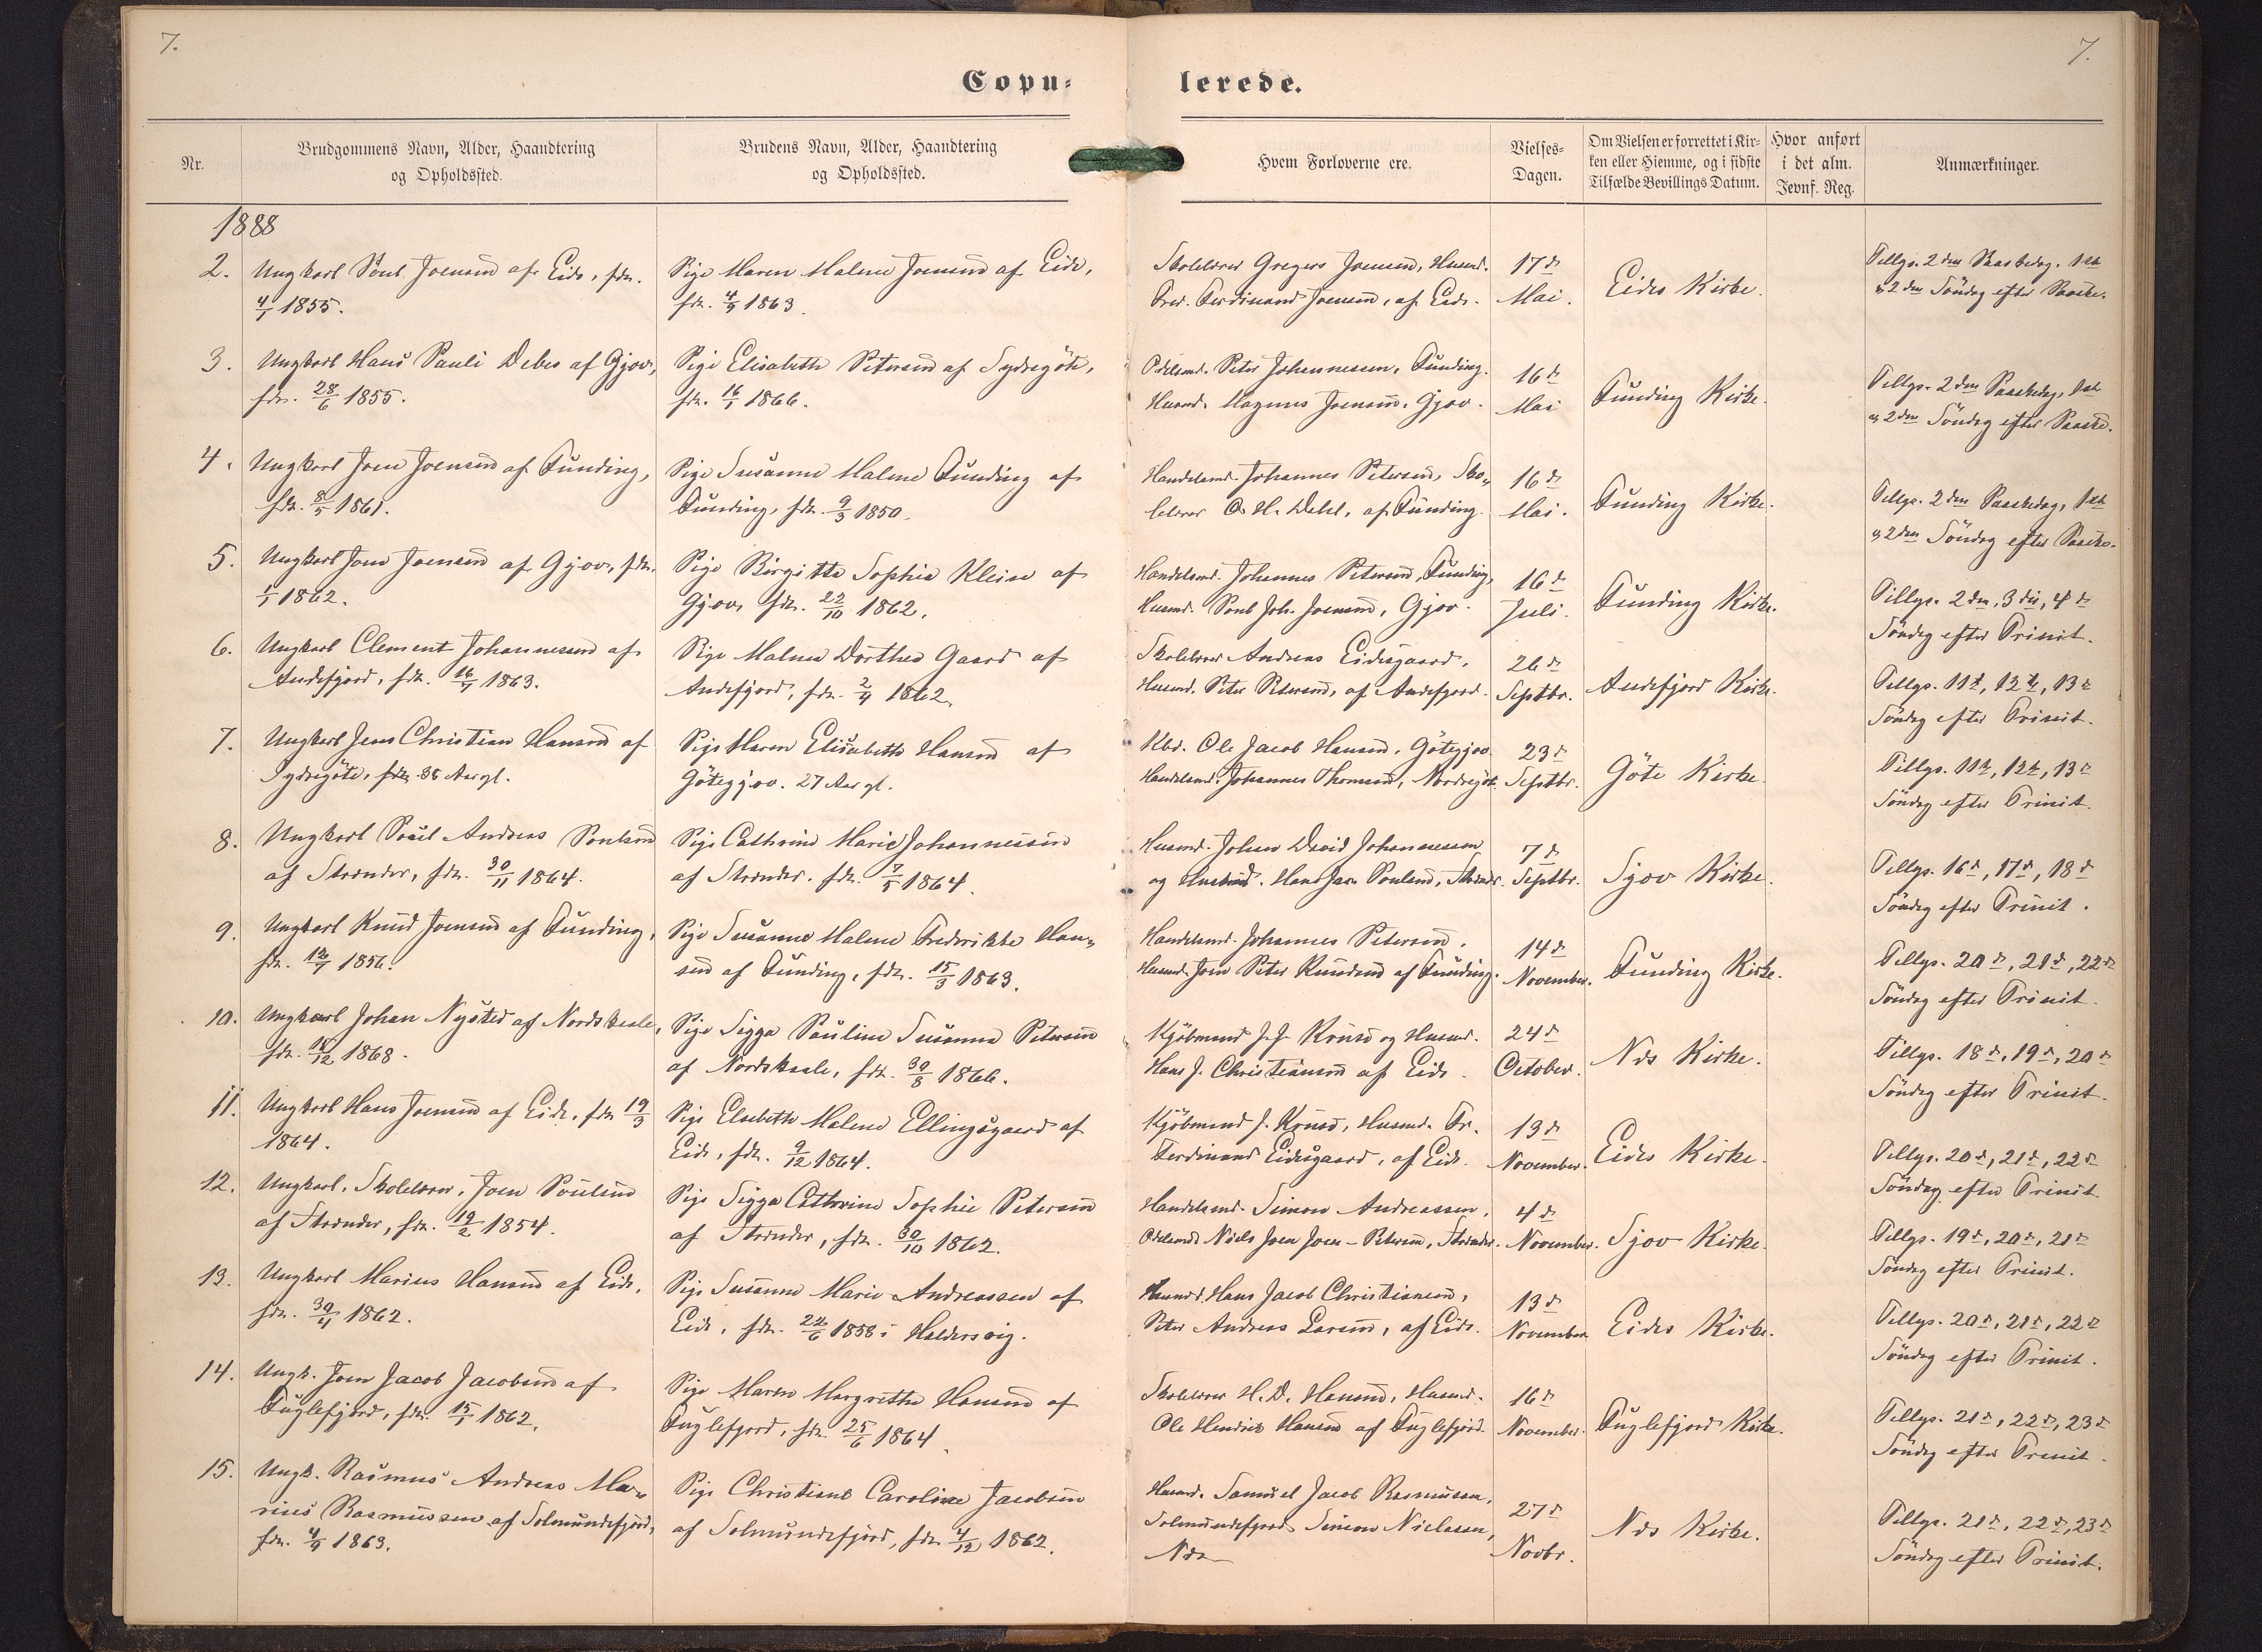 7.
7.
Copu-
lerede.
Nr.
Brudgommens Navn, Alder, Haandtering
og Opholdssted.
Brudens Navn, Alder, Haandtering
og Opholdssted.
Hvem Forloverne ere.
Vielses-
Dagen.
Om Vielsen er forrettet i Kir-
ken eller Hjemme, og i sidste
Tilfælde Bevillings Datum.
Hvor anført
i det alm.
Jevnf. Reg.
Anmærkninger.
1888
2. Ungkarl Poul Joensen af Eide, fdt. Pige Maren Malene Joensen af Eide, Skolelærer Gregers Joensen, Husmd. 17de Tillys. 2den Paaskedag, 1ste
4/1 1855. fdt. 4/9 1863. Fred. Ferdinand Joensen, af Eide. Mai. Eides Kirke. & 2den Søndag efter Paaske.
3. Ungkarl Hans Pauli Debes af Gjov, Pige Elisabeth Petersen af Sydregöte, Odelsmd. Peter Johannesen, Funding. 16de Tillys. 2den Paaskedag, 1ste
fdt. 28/6 1855. fdt. 16/1 1866. Husmd. Magnus Joensen, Gjov. Mai Funding Kirke. og 2den Søndag efter Paaske.
4. Ungkarl Joen Joensen af Funding, Pige Susanne Malene Funding af Handelsmd. Johannes Petersen, Sko- 16de Tillys. 2den Paaskedag, 1ste
fdt. 8/5 1861. Funding, fdt. 9/3 1850. lelærer O. H. Dahl, af Funding. Mai. Funding Kirke. og 2den Søndag efter Paaske.
5. Ungkarl Joen Joensen af Gjov, fdt. Pige Birgitte Sophie Klein af Handelsmd. Johannes Petersen, Funding, 16de Tillys. 2den, 3die, 4de
1/1 1862. Gjov, fdt. 22/10 1862. Husmd. Poul Joh. Joensen, Gjov. Juli. Funding Kirke. Søndag efter Trinit.
6. Ungkarl Clement Johannesen af Pige Malene Dorthea Gaard af Skolelærer Andreas Eidesgaard, 26de Tillys. 11te, 12te, 13de
Andefjord, fdt. 1863. Andefjord, fdt. 1862. Husmd. Peter Petersen, af Andefjord. Septbr. Andefjord Kirke. Søndag efter Trinit.
7. Ungkarl Jens Christian Hansen af Pige Maren Elisabeth Hansen af Kbd. Ole Jacob Hansen, Götegjov 23de Tillys. 11te, 12te, 13de
Sydregöte, 36 Aar gl. Götegjov. 27 Aar gl. Handelsmd. Johannes Thomsen, Nordregöte. Septbr. Göte Kirke. Søndag efter Trinit.
8. Ungkarl Poul Andreas Poulsen Pige Cathrine Marie Johannessen Husmd. Johan David Johannessen 7de Tillys. 16de, 17de, 18de
af Strænder, fdt. 30/11 1864. af Strænder. fdt. 7/5 1864. og Husmd. Hans Jac. Poulsen, Strænder. Septbr. Sjov Kirke. Søndag efter Trinit.
9. Ungkarl Knud Joensen af Funding, Pige Susanne Malene Frederikke Han- Handelsmd. Johannes Petersen, 14de Tillys. 20de, 21de, 22de
fdt. 1856. sen af Funding, fdt. 15/3 1863. Husmd. Joen Peter Knudsen af Funding. November. Funding Kirke. Søndag efter Trinit.
10. Ungkarl Johan Nysted af Nordskaale, Pige Sigga Pauline Susanna Petersen Kjøbmand J. J. Kruse og Husmd. 24de Tillys. 18de, 19de, 20de
fdt. 18/12 1868. af Nordskaale, fdt. 30/8 1866. Hans J. Christiansen af Eide. October. Næs Kirke. Søndag efter Trinit.
11. Ungkarl Hans Joensen af Eide, fdt. 19/3 Pige Elsebeth Malene Ellingsgaard af Kjøbmand J. Kruse, Husmd. Fr. 13de Tillys. 20de, 21de, 22de
1864. Eide, fdt. 9/12 1864. Ferdinand Eidesgaard, af Eide. November. Eides Kirke. Søndag efter Trinit.
12. Ungkarl, Skolelærer, Joen Poulsen Pige Sigga Cathrine Sophie Petersen Handelsmd. Simon Andreassen, 4de Tillys. 19de, 20de, 21de
af Strænder, fdt. 19/2 1854. af Strænder, fdt. 30/10 1862. Odelsmd. Niels Joen Joen-Petersen, Strænder. November. Sjov Kirke. Søndag efter Trinit.
13. Ungkarl Marius Hansen af Eide, Pige Susanne Marie Andreassen af Husmd. Hans Jacob Christiansen, 13de Tillys. 20de, 21de, 22de
fdt. 1862. Eide, fdt. 22/6 1858 i Haldersvig. Peter Andreas Larsen, af Eide. November. Eides Kirke. Søndag efter Trinit.
14. Ungk. Joen Jacob Jacobsen af Pige Maren Margrethe Hansen af Skolelærer H. D. Hansen, Husmd. 16de Tillys. 21de, 22de, 23de
Fuglefjord, fdt. 15/1 1862. Fuglefjord, fdt. 25/6 1864. Ole Hendrik Hansen af Fuglefjord. November. Fuglefjord Kirke. Søndag efter Trinit.
15. Ungk. Rasmus Andreas Ma- Pige Christiane Caroline Jacobsen Husmd. Samuel Jacob Rasmussen, 27de Tillys. 21de, 22de, 23de
rius Rasmussen af Solmundefjord, af Solmundefjord, fdt. 4/12 1862. Solmundefjord, Simon Nielsen, Næs Kirke. Søndag efter Trinit.
fdt. 4/9 1863. Næs Novbr.